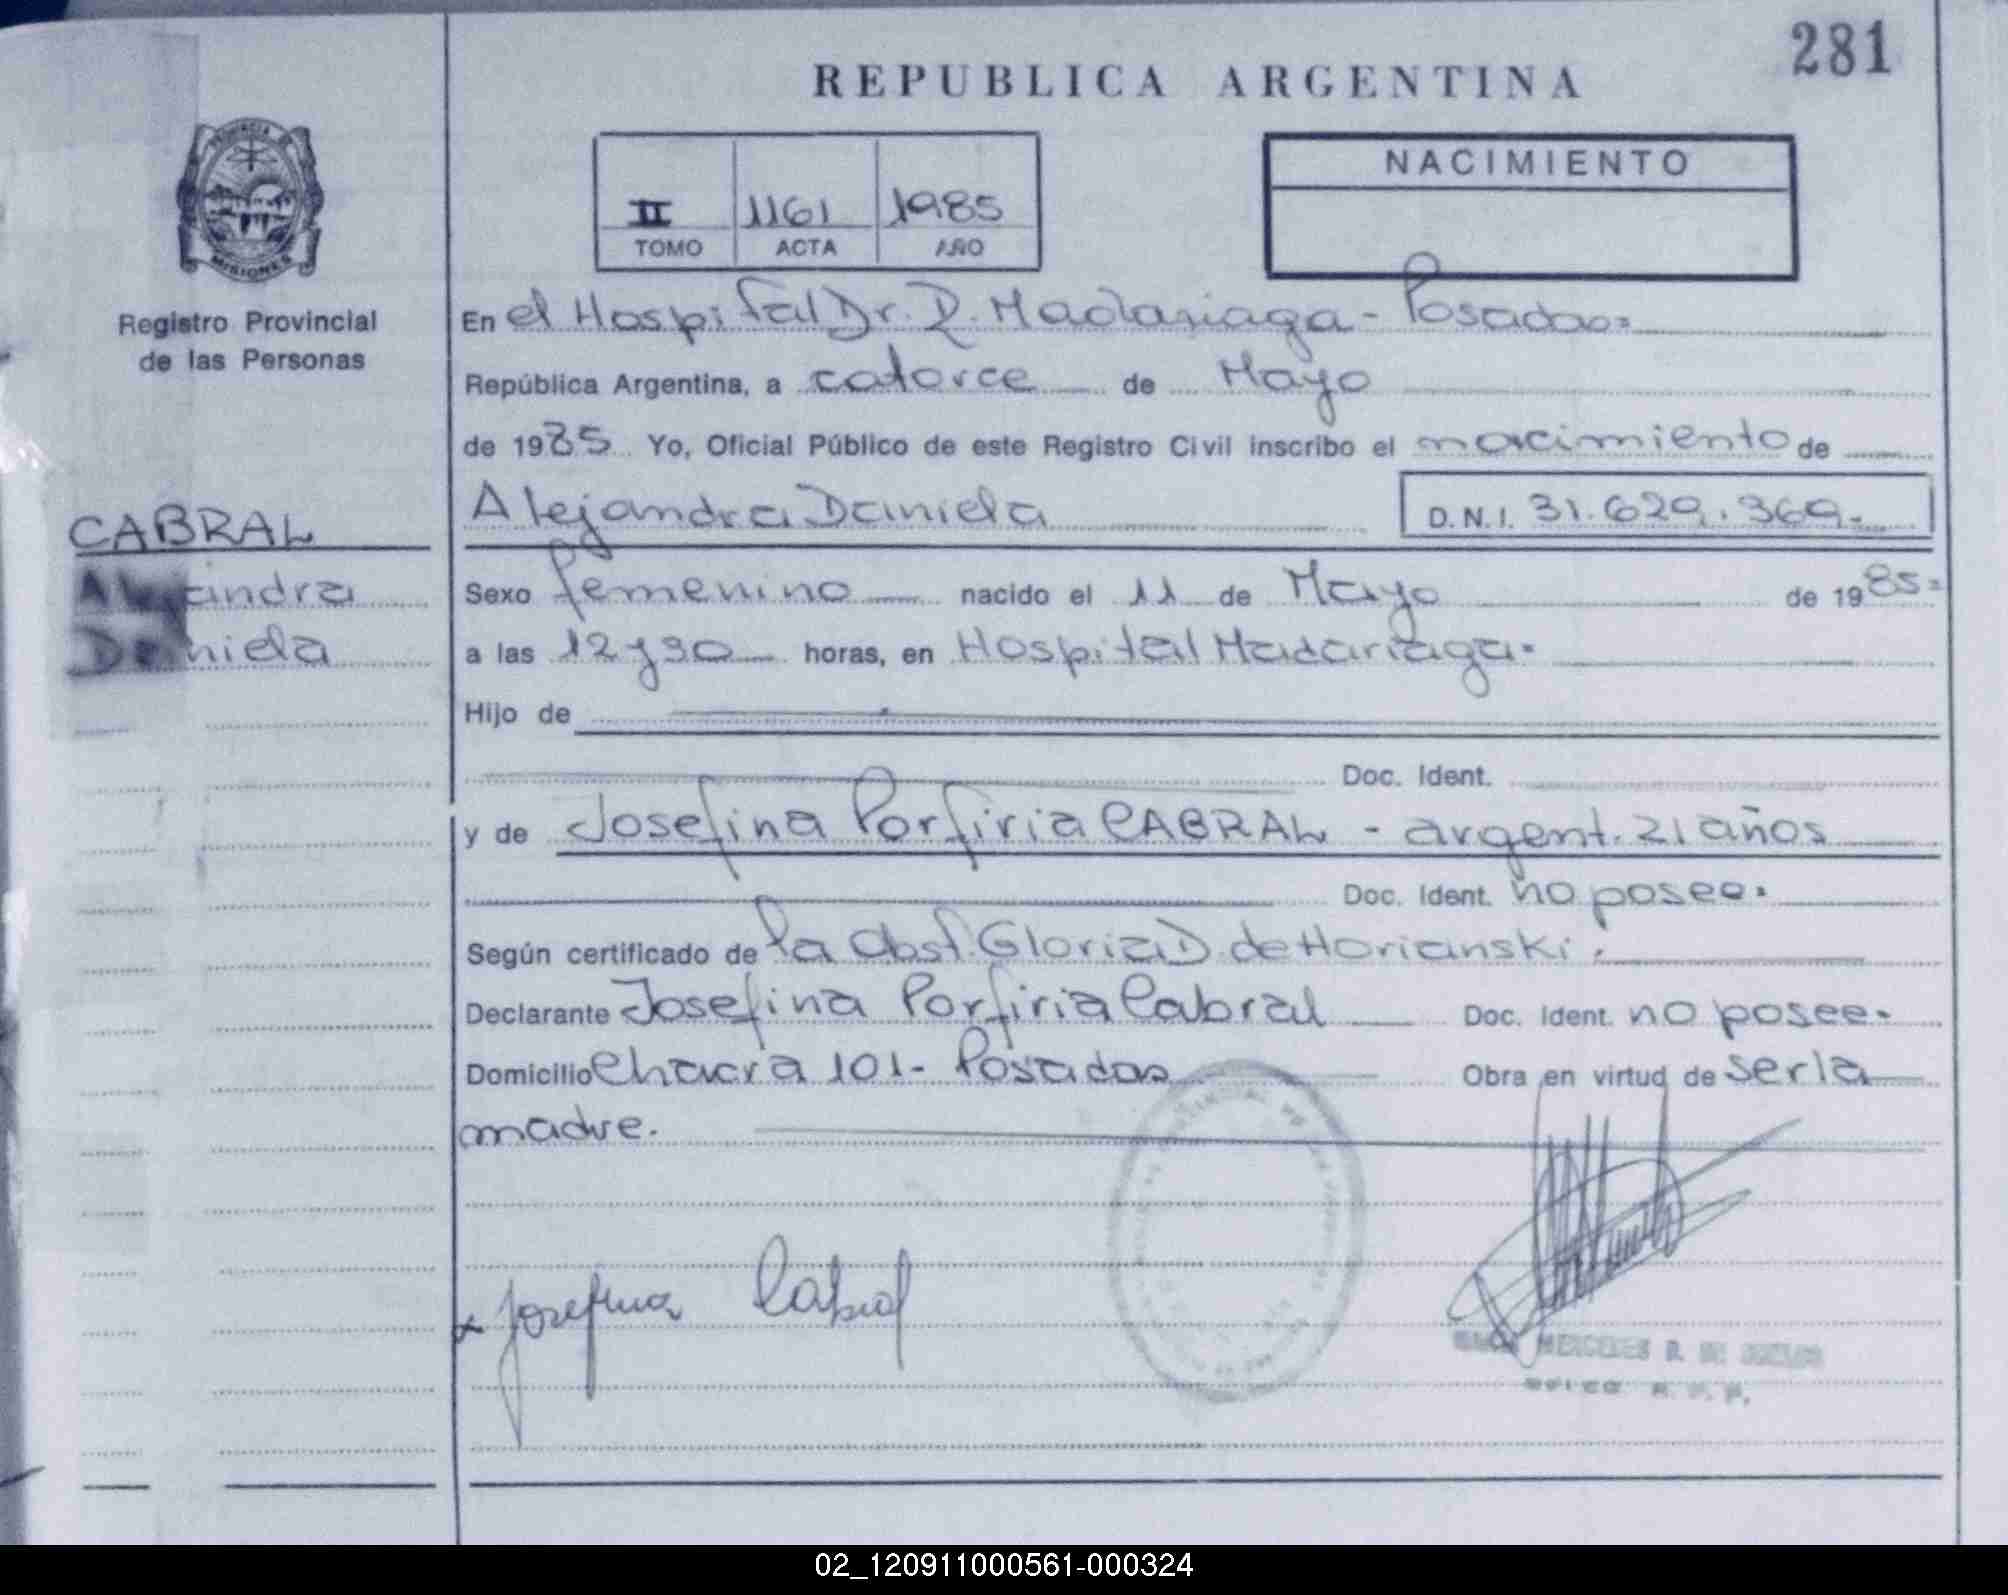 281
REPUBLICA ARGENTINA
PROVINCIA DE
MISIONES
Registro Provincial
de las Personas
II 1161 1985
TOMO ACTA AÑO
NACIMIENTO
En el Hospital Dr. R. Madariaga - Posadas=
República Argentina, a catorce de Mayo
de 1985 Yo, Oficial Público de este Registro Civil inscribo el nacimiento de
CABRAL
Alejandra
Daniela
Alejandra Daniela D.N.I. 31.629.369.-
Sexo femenino nacido el 11 de Mayo de 1985=
a las 12 y 30 horas, en Hospital Madariaga.
Hijo de
Doc. Ident.
y de Josefina Porfiria CABRAL - argent. 21 años
Doc. Ident. no posee.
Según certificado de la Obst. Gloria D. de Horianski.
Declarante Josefina Porfiria Cabral Doc. Ident. no posee.
Domicilio Chacra 101- Posadas Obra en virtud de ser la
madre.
x Josefina Cabral
MERCEDES R. DE
R. P. P.
02_120911000561-000324